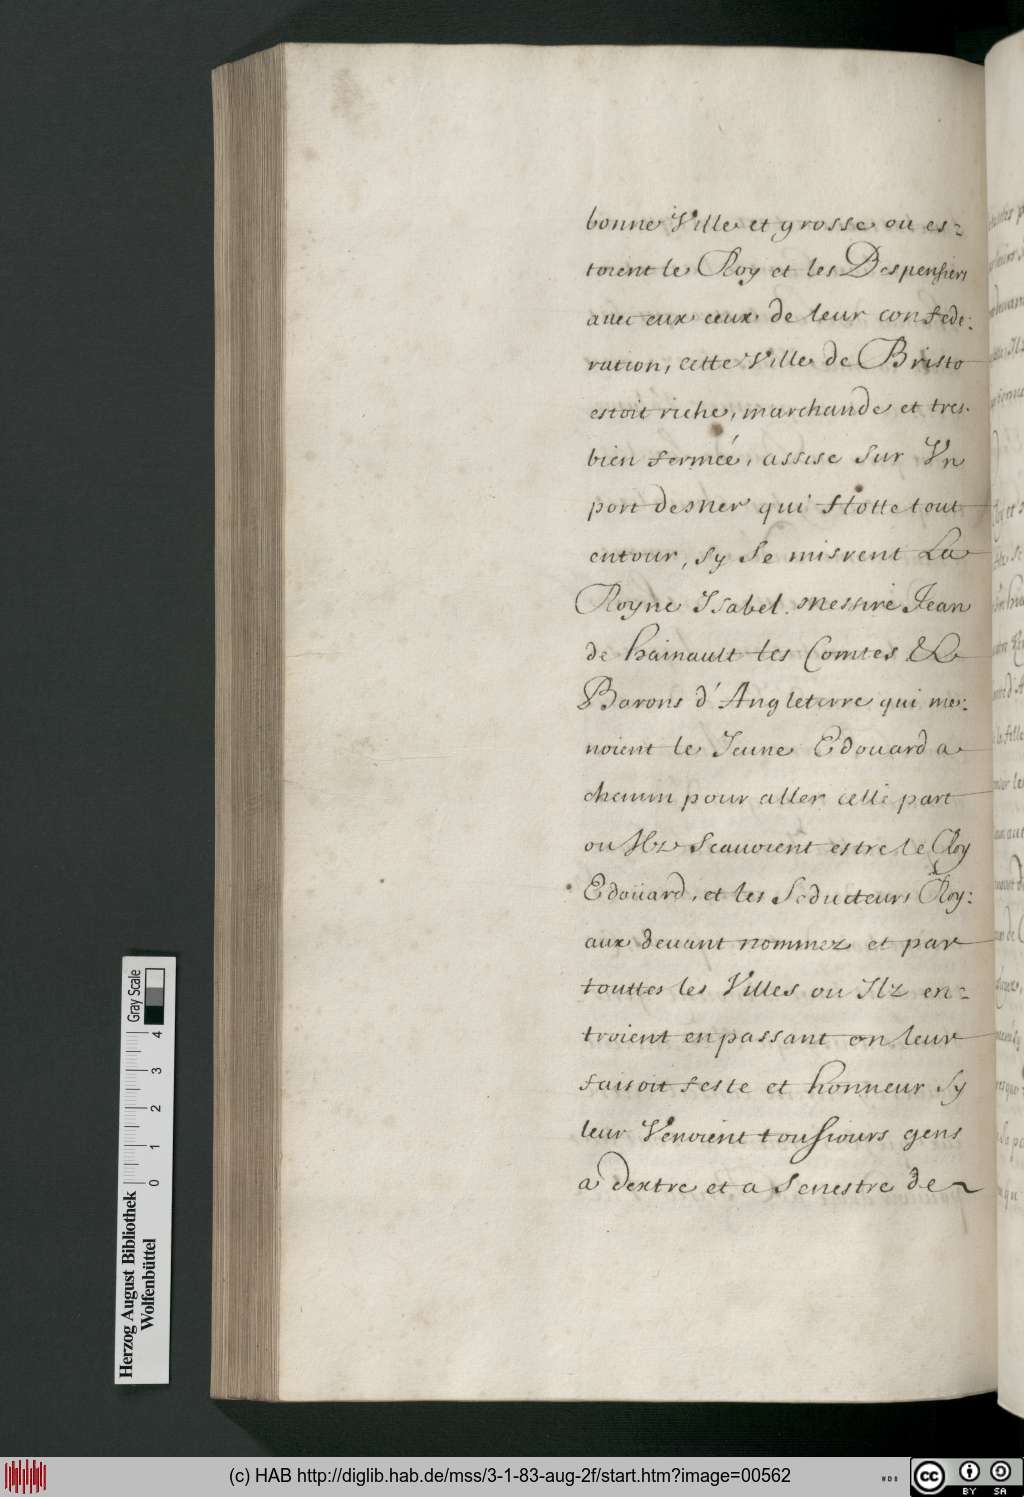 bonne Ville et grosse ou es-
toient le Roy et les Despensiers
auec eux ceux de leur confede-
ration, cette Ville de Bristo
estoit riche, marchande et tres-
bien fermeé, assise sur Vn
port de mer qui flotte tout
entour, sy se misrent La
Royne Isabel. messire Jean
de hainault les Comtes &
Barons d'Angleterre qui me-
noient le Jeune Edouard a
chemin pour aller celle part
ou Ilz scauoient estre le Roy
Edoüard, et les Seducteurs Roy-
aux deuant nommez et par
touttes les Villes ou Ilz en-
troient en passant on leur
faisoit feste et honneur sy
leur Venoient tousiours gens
a dextre et a senestre de
Gray Scale
0 1 2 3 4
Herzog August Bibliothek
Wolfenbüttel
(c) HAB http://diglib.hab.de/mss/3-1-83-aug-2f/start.htm?image=00562
WDB
cc
BY SA